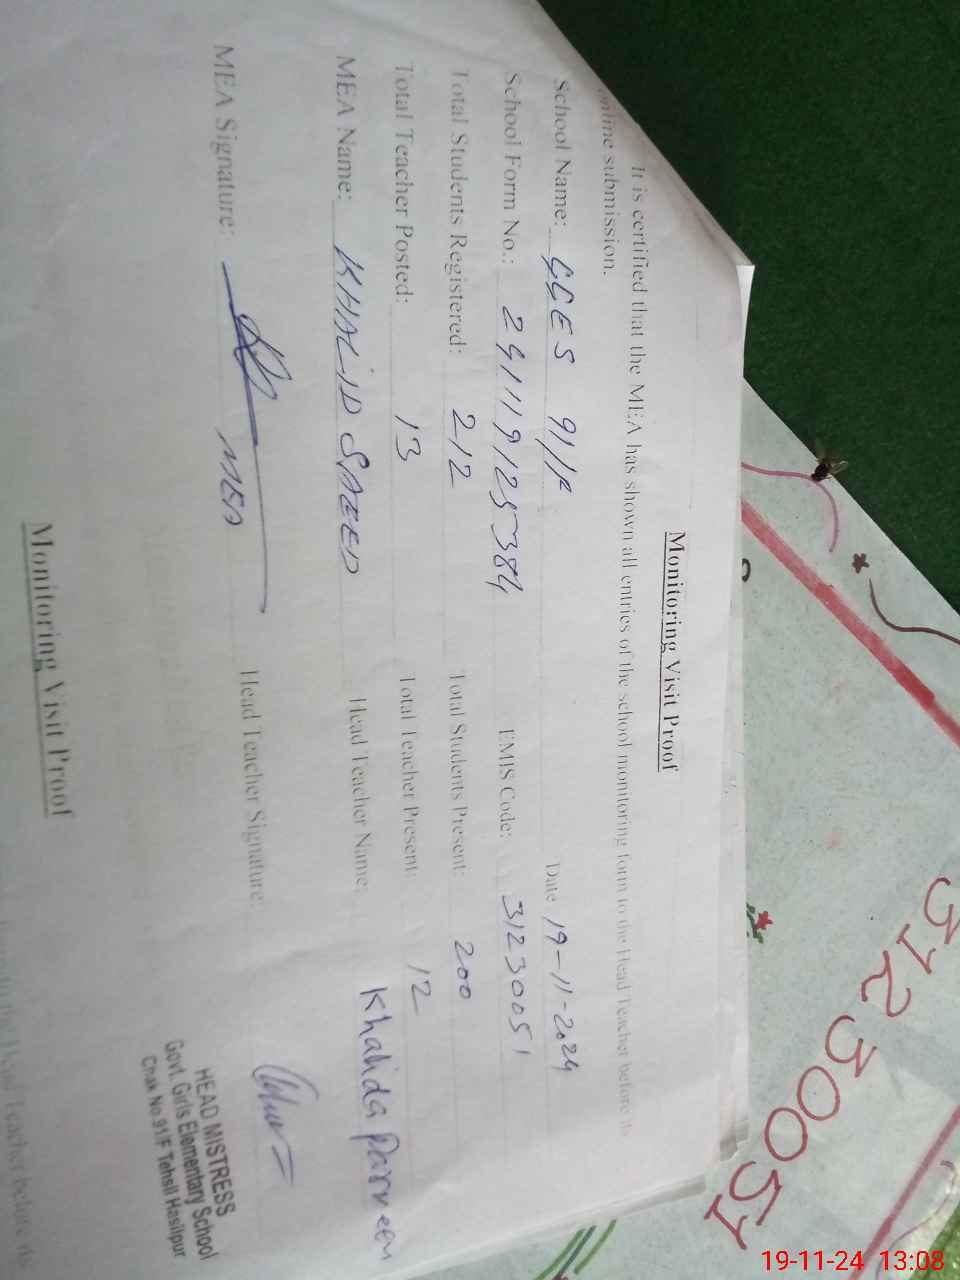 Monitoring Visit Proof
It is certified that the MEA has shown all entries of the school monitoring form to the Head Teacher before its
online submission.
School Name: GGES 91/F Date 19-11-2024
School Form No.: 2411191255384 EMIS Code: 31230051
Total Students Registered: 212 Total Students Present: 200
Total Teacher Posted: 13 Total Teacher Present: 12
MEA Name: KHALID SAEED Head Teacher Name: Khalida Parveen
MEA Signature: MEA Head Teacher Signature:
HEAD MISTRESS
Govt. Girls Elementary School
Chak No.91/F Tehsil Hasilpur
Monitoring Visit Proof
form to the Head Teacher before its
31230051
19-11-24 13:08